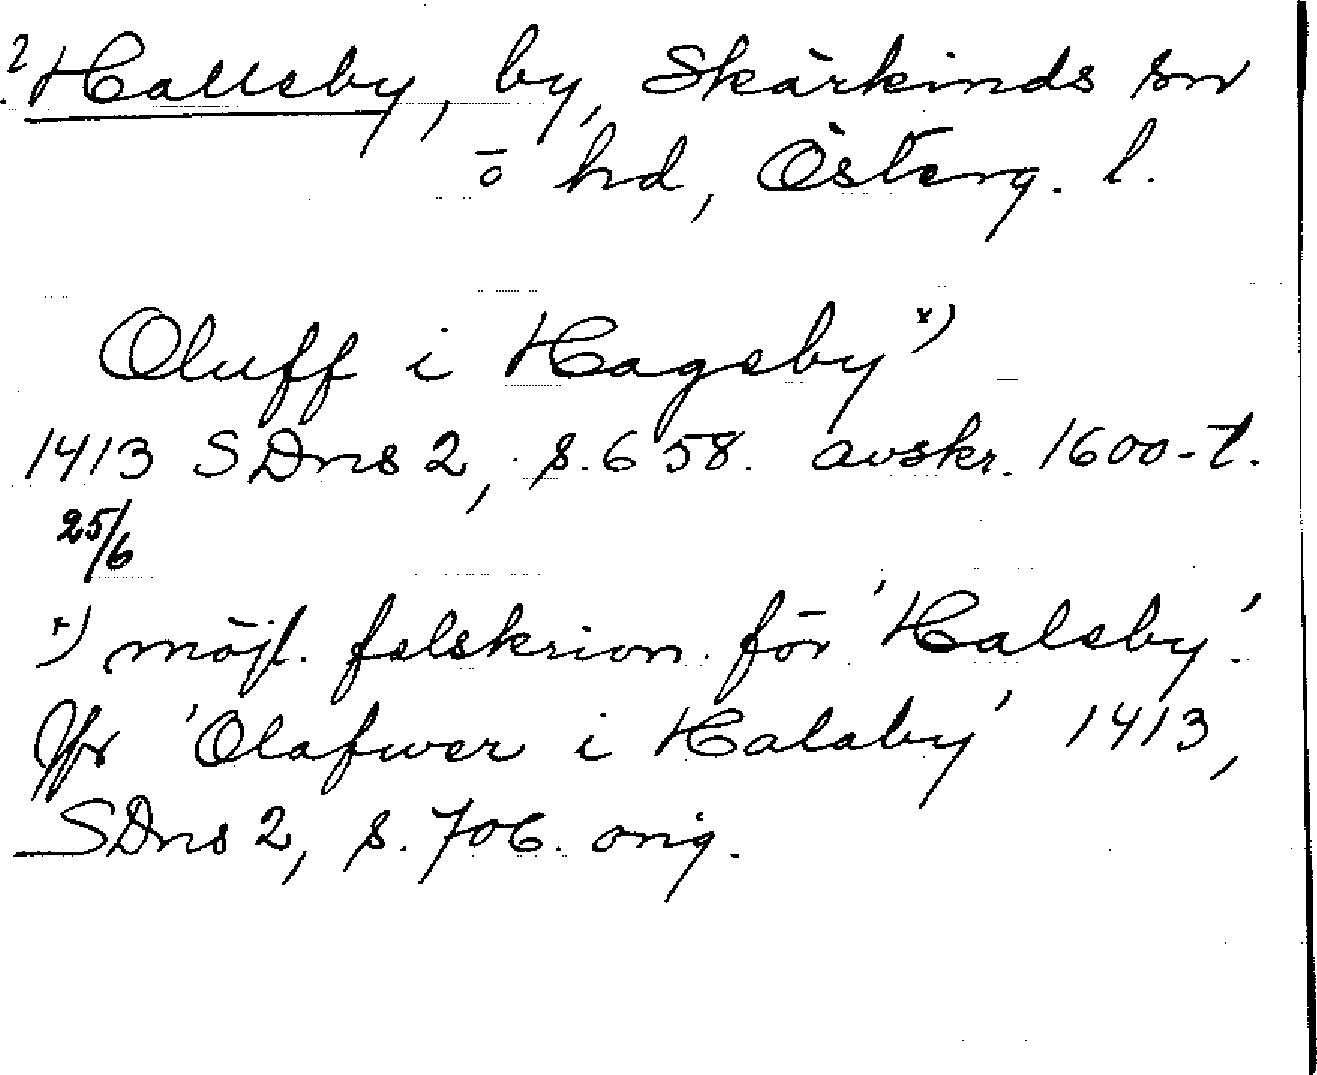 ? Hallsby, by, Skärkinds sn
o hd, Österg. l.
Oluff i Hagsby x)
1413 SDns 2, s. 658. avskr. 1600-t.
25/6
x) möjl. felskrivn. för 'Halsby'.
Jfr 'Olafwer i Halsby' 1413,
SDns 2, s. 706. orig.